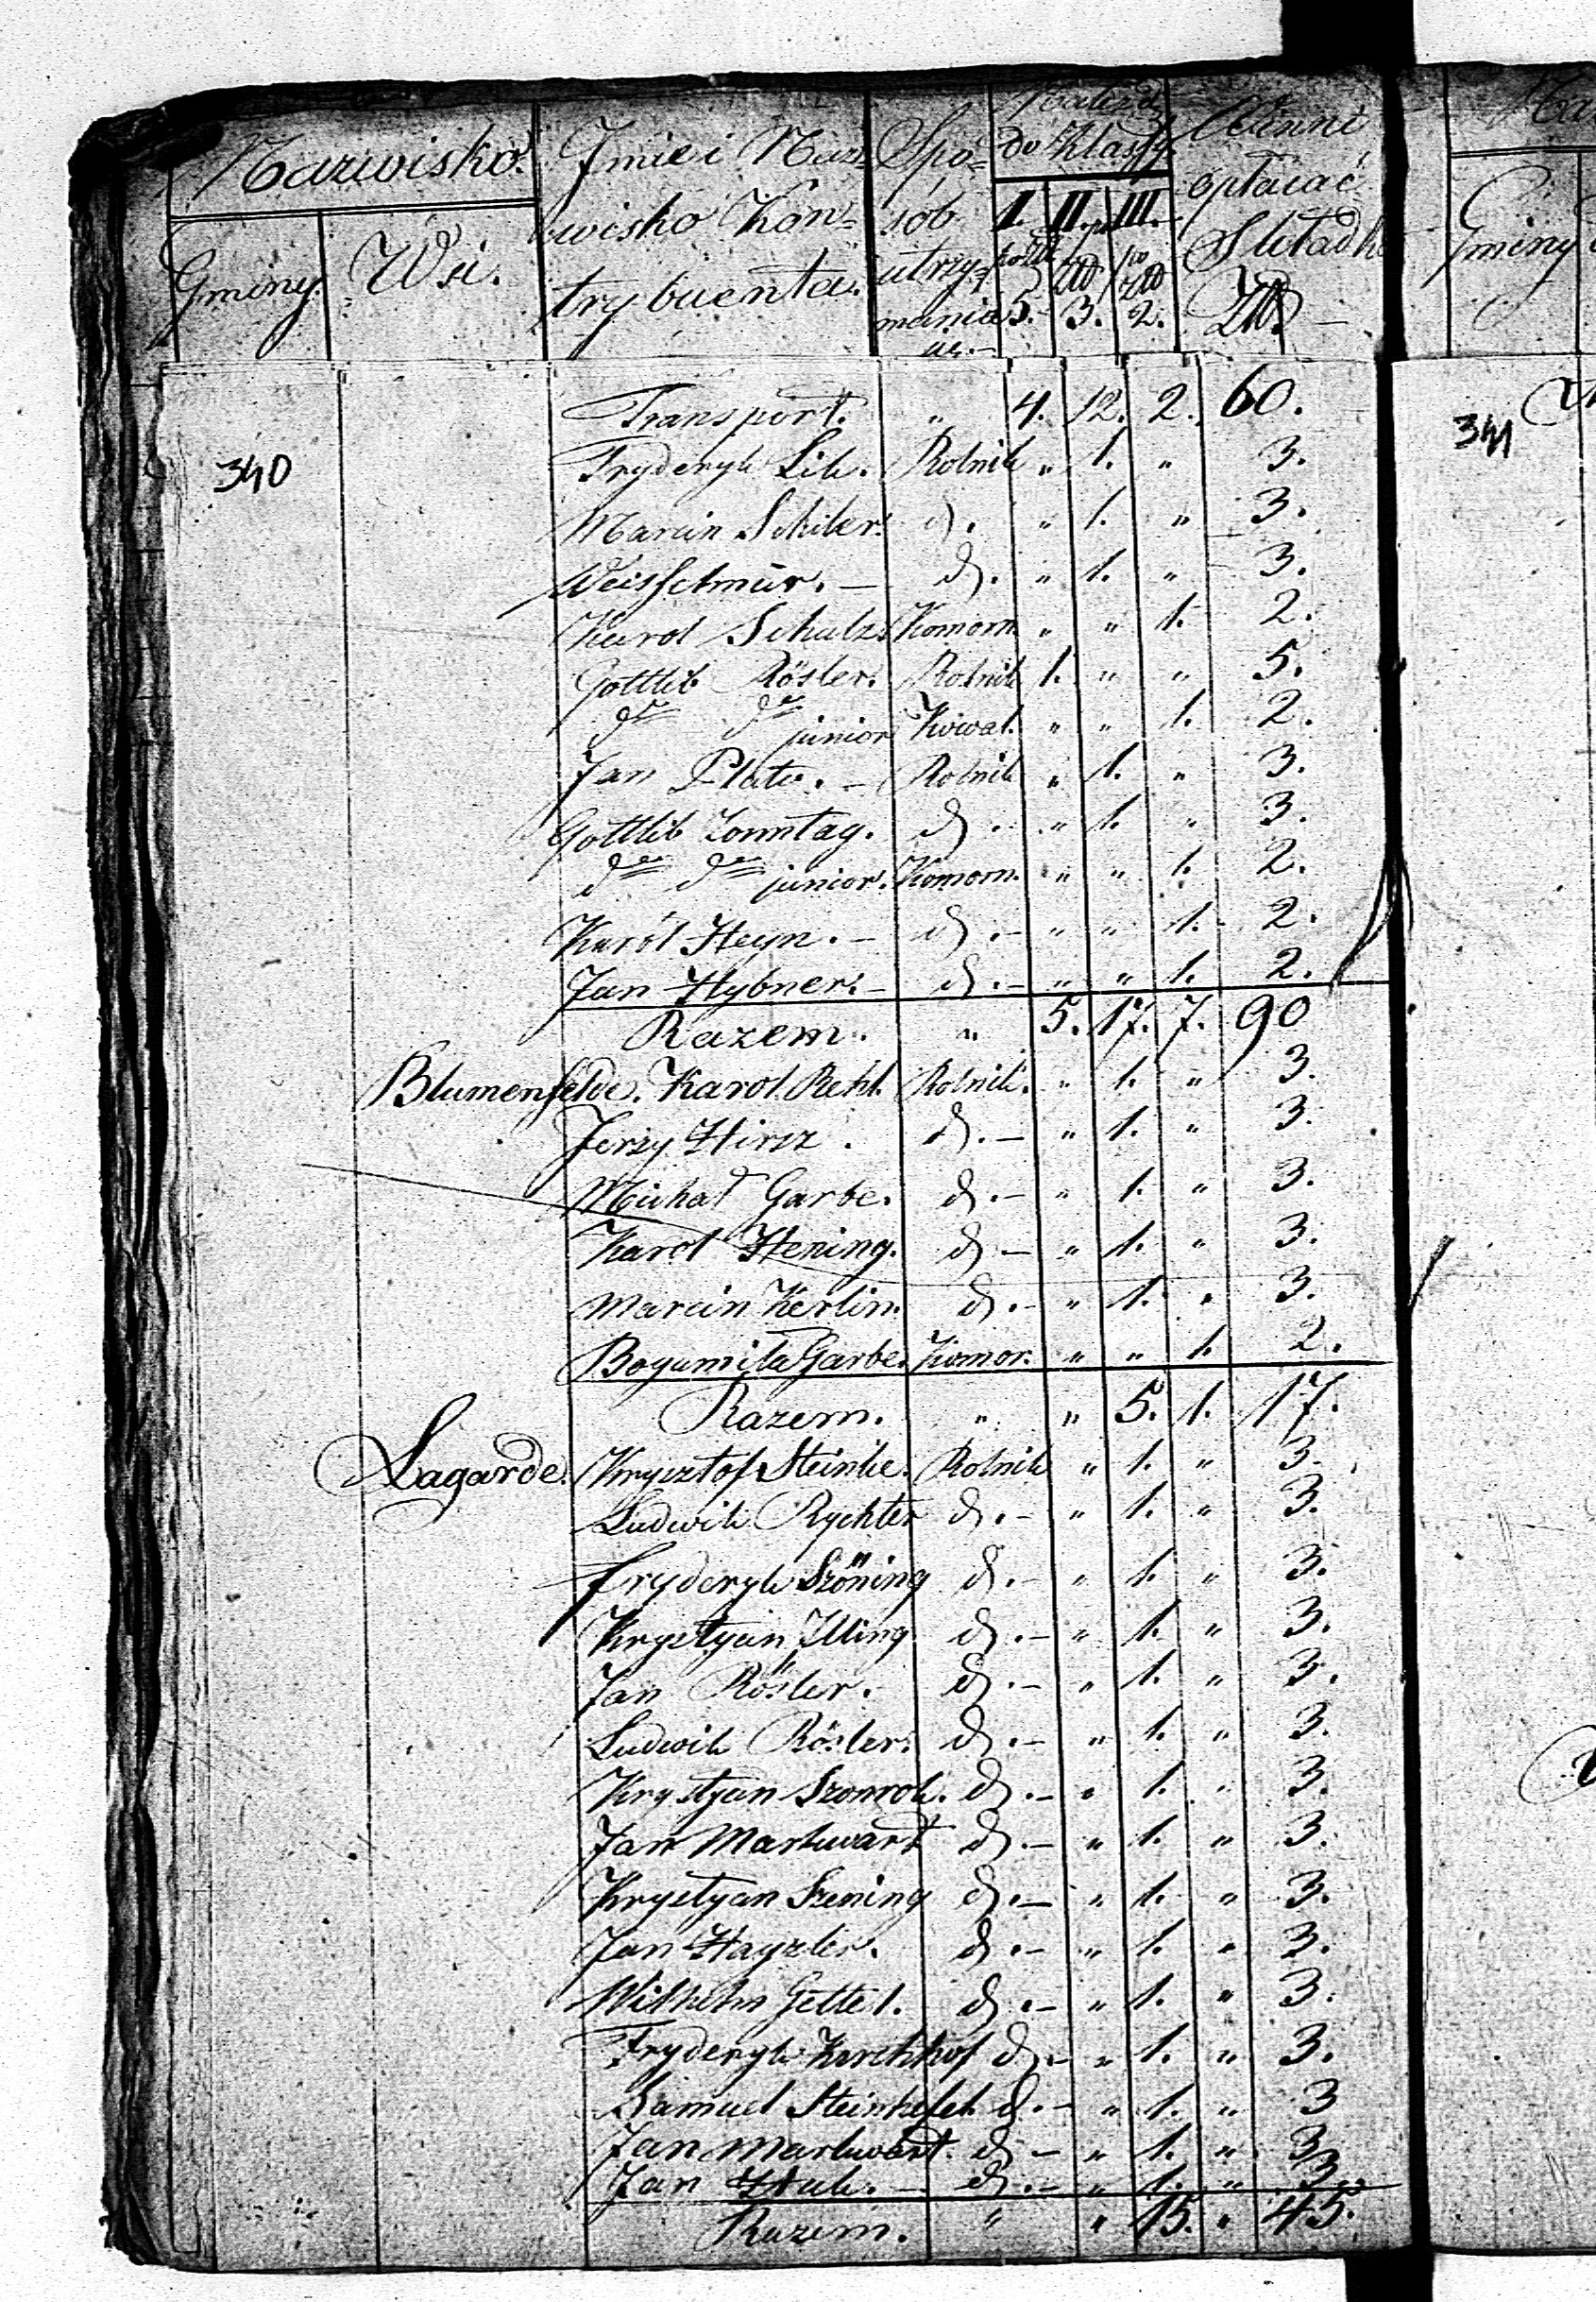 Nazwisko.
Gminy
Wsi.
Jmie i Naz=
wisko Kon=
trybuenta.
Spo=
sób
utrzy=
mania
do Klassy.
I. II. III.
5. 3. 2.
opłacać
Składkę
Złł.
Gminy
340
341
Transport. " 4. 12. 2. 60.
Fryderyk Lik. Rolnik " 1. " 3.
Marcin Schiler. d. " 1. " 3.
Weisschnur. — d. " 1. " 3.
Karol Schulz. Komorn. " " 1. 2.
Gottlib Rösler. Rolnik 1. " " 5.
dto dto junior Kowal. " " 1. 2.
Jan Plato. — Rolnik " 1. " 3.
Gottlib Zonntag. d. " 1. " 3.
dto dto junior. Komorn. " " 1. 2.
Karól Heyn. — d. — " " 1. 2.
Jan Hybner. — d. — " " 1. 2.
Razem. " 5. 17. 7. 90
Blumenfelde. Karol Rehl. Rolnik. " 1. " 3.
Jerzy Hirsz. d. — " 1. " 3.
Michał Garbe. d. — " 1. " 3.
Karol Hening. d — " 1. " 3.
Marcin Kerlin. d. — " 1. " 3.
Bogumiła Garbe. Komor. " " 1. 2.
Razem. " " 5. 1. 17.
Lagarde. Krysztof Steinke. Rolnik " 1. " 3.
Ludwik Rychter d. — " 1. " 3.
Fryderyk Szöning d. — " 1. " 3.
Krystyan Illing d. — " 1. " 3.
Jan Rösler. d. — " 1. " 3.
Ludwik Rösler. d. — " 1. " 3.
Krystyan Szonrok. d. — " 1. " 3.
Jan Markwart d. — " 1. " 3.
Krystyan Szening d. — " 1. " 3.
Jan Hayzler. d. — " 1. " 3.
Wilhelm Gettel. d. — " 1. " 3.
Fryderyk Kerchhof d. — " 1. " 3.
Samuel d. — " 1. " 3
Jan Markwart. d — " 1. " 3
Jan Hak. — d. — " 1. " 3.
Razem. " " 15. " 45.